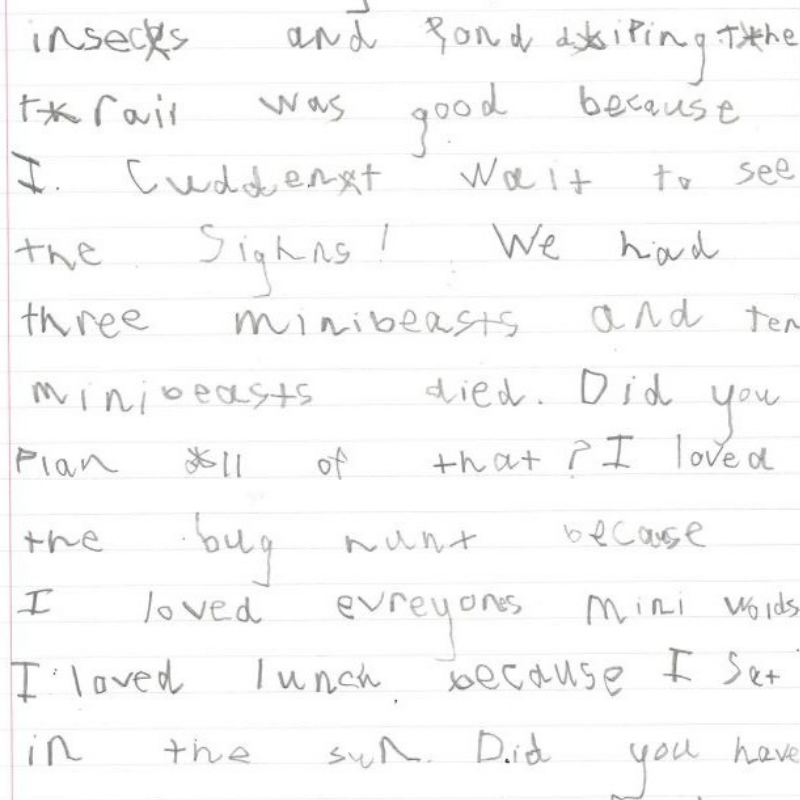 insects and Pond diping the
trail was good because
I. Cuddennt wait to see
the Sighns! We had
three minibeasts and ten
minibeasts died. Did you
Plan all of that? I loved
the bug hunt because
I loved evreyones mini wolds
I loved lunch because I Sat
in the sun. Did you have